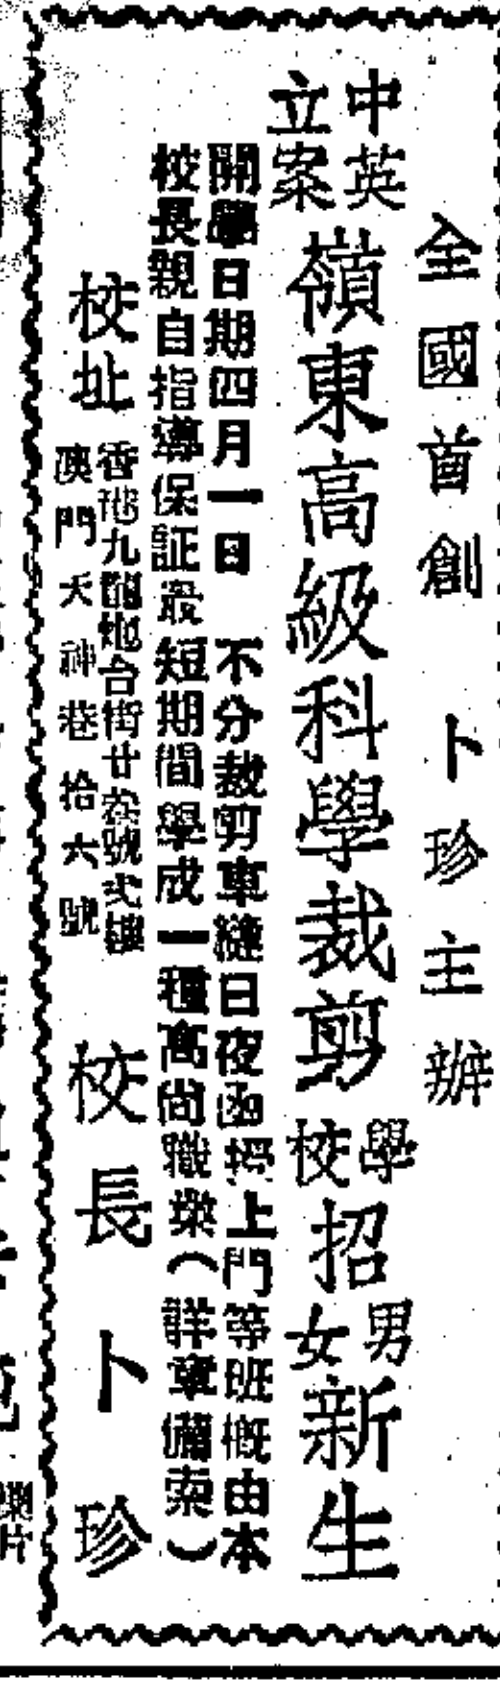 全國首創 卜珍主辦
中英立案嶺東高級科學裁剪學校招男女新生
開學日期四月一日 不分裁剪車縫日夜函授上門等班概由本
校長親自指導保証最短期間學成一種高尚職業(詳章備索)
校址 香港九龍炮台街廿叁號弍樓
澳門天神巷拾六號
校長卜珍